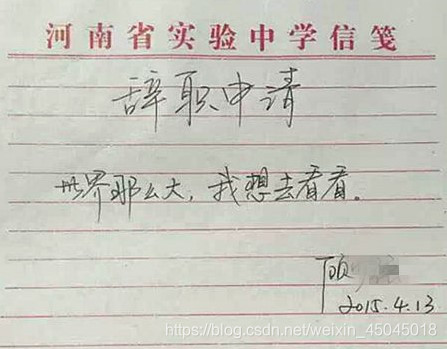 河南省实验中学信笺
辞职申请
世界那么大，我想去看看。
顾
2015.4.13
https://blog.csdn.net/weixin_45045018